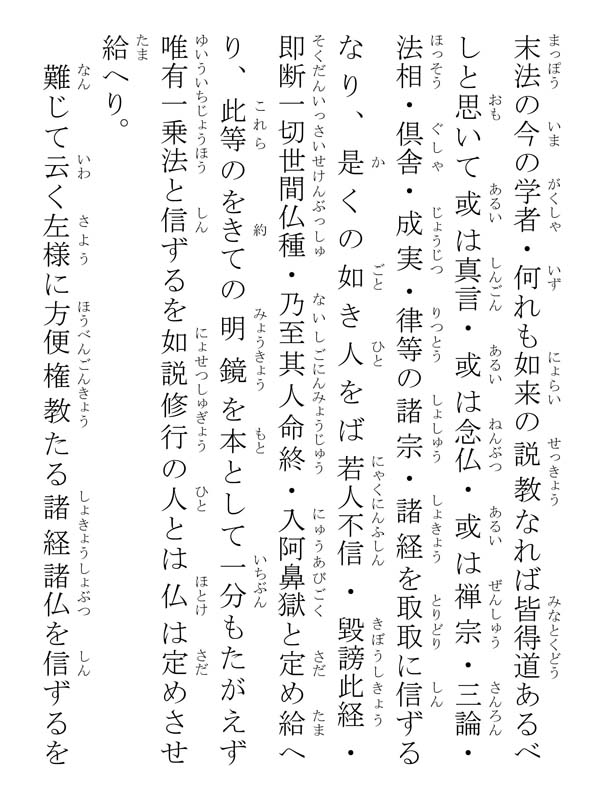 末法の今の学者・何れも如来の説教なれば皆得道あるべ
しと思いて或は真言・或は念仏・或は禅宗・三論・
法相・倶舎・成実・律等の諸宗・諸経を取取に信ずる
なり、是くの如き人をば若人不信・毀謗此経・
即断一切世間仏種・乃至其人命終・入阿鼻獄と定め給へ
り、此等のをきての明鏡を本として一分もたがえず
唯有一乗法と信ずるを如説修行の人とは仏は定めさせ
給へり。
難じて云く左様に方便権教たる諸経諸仏を信ずるを